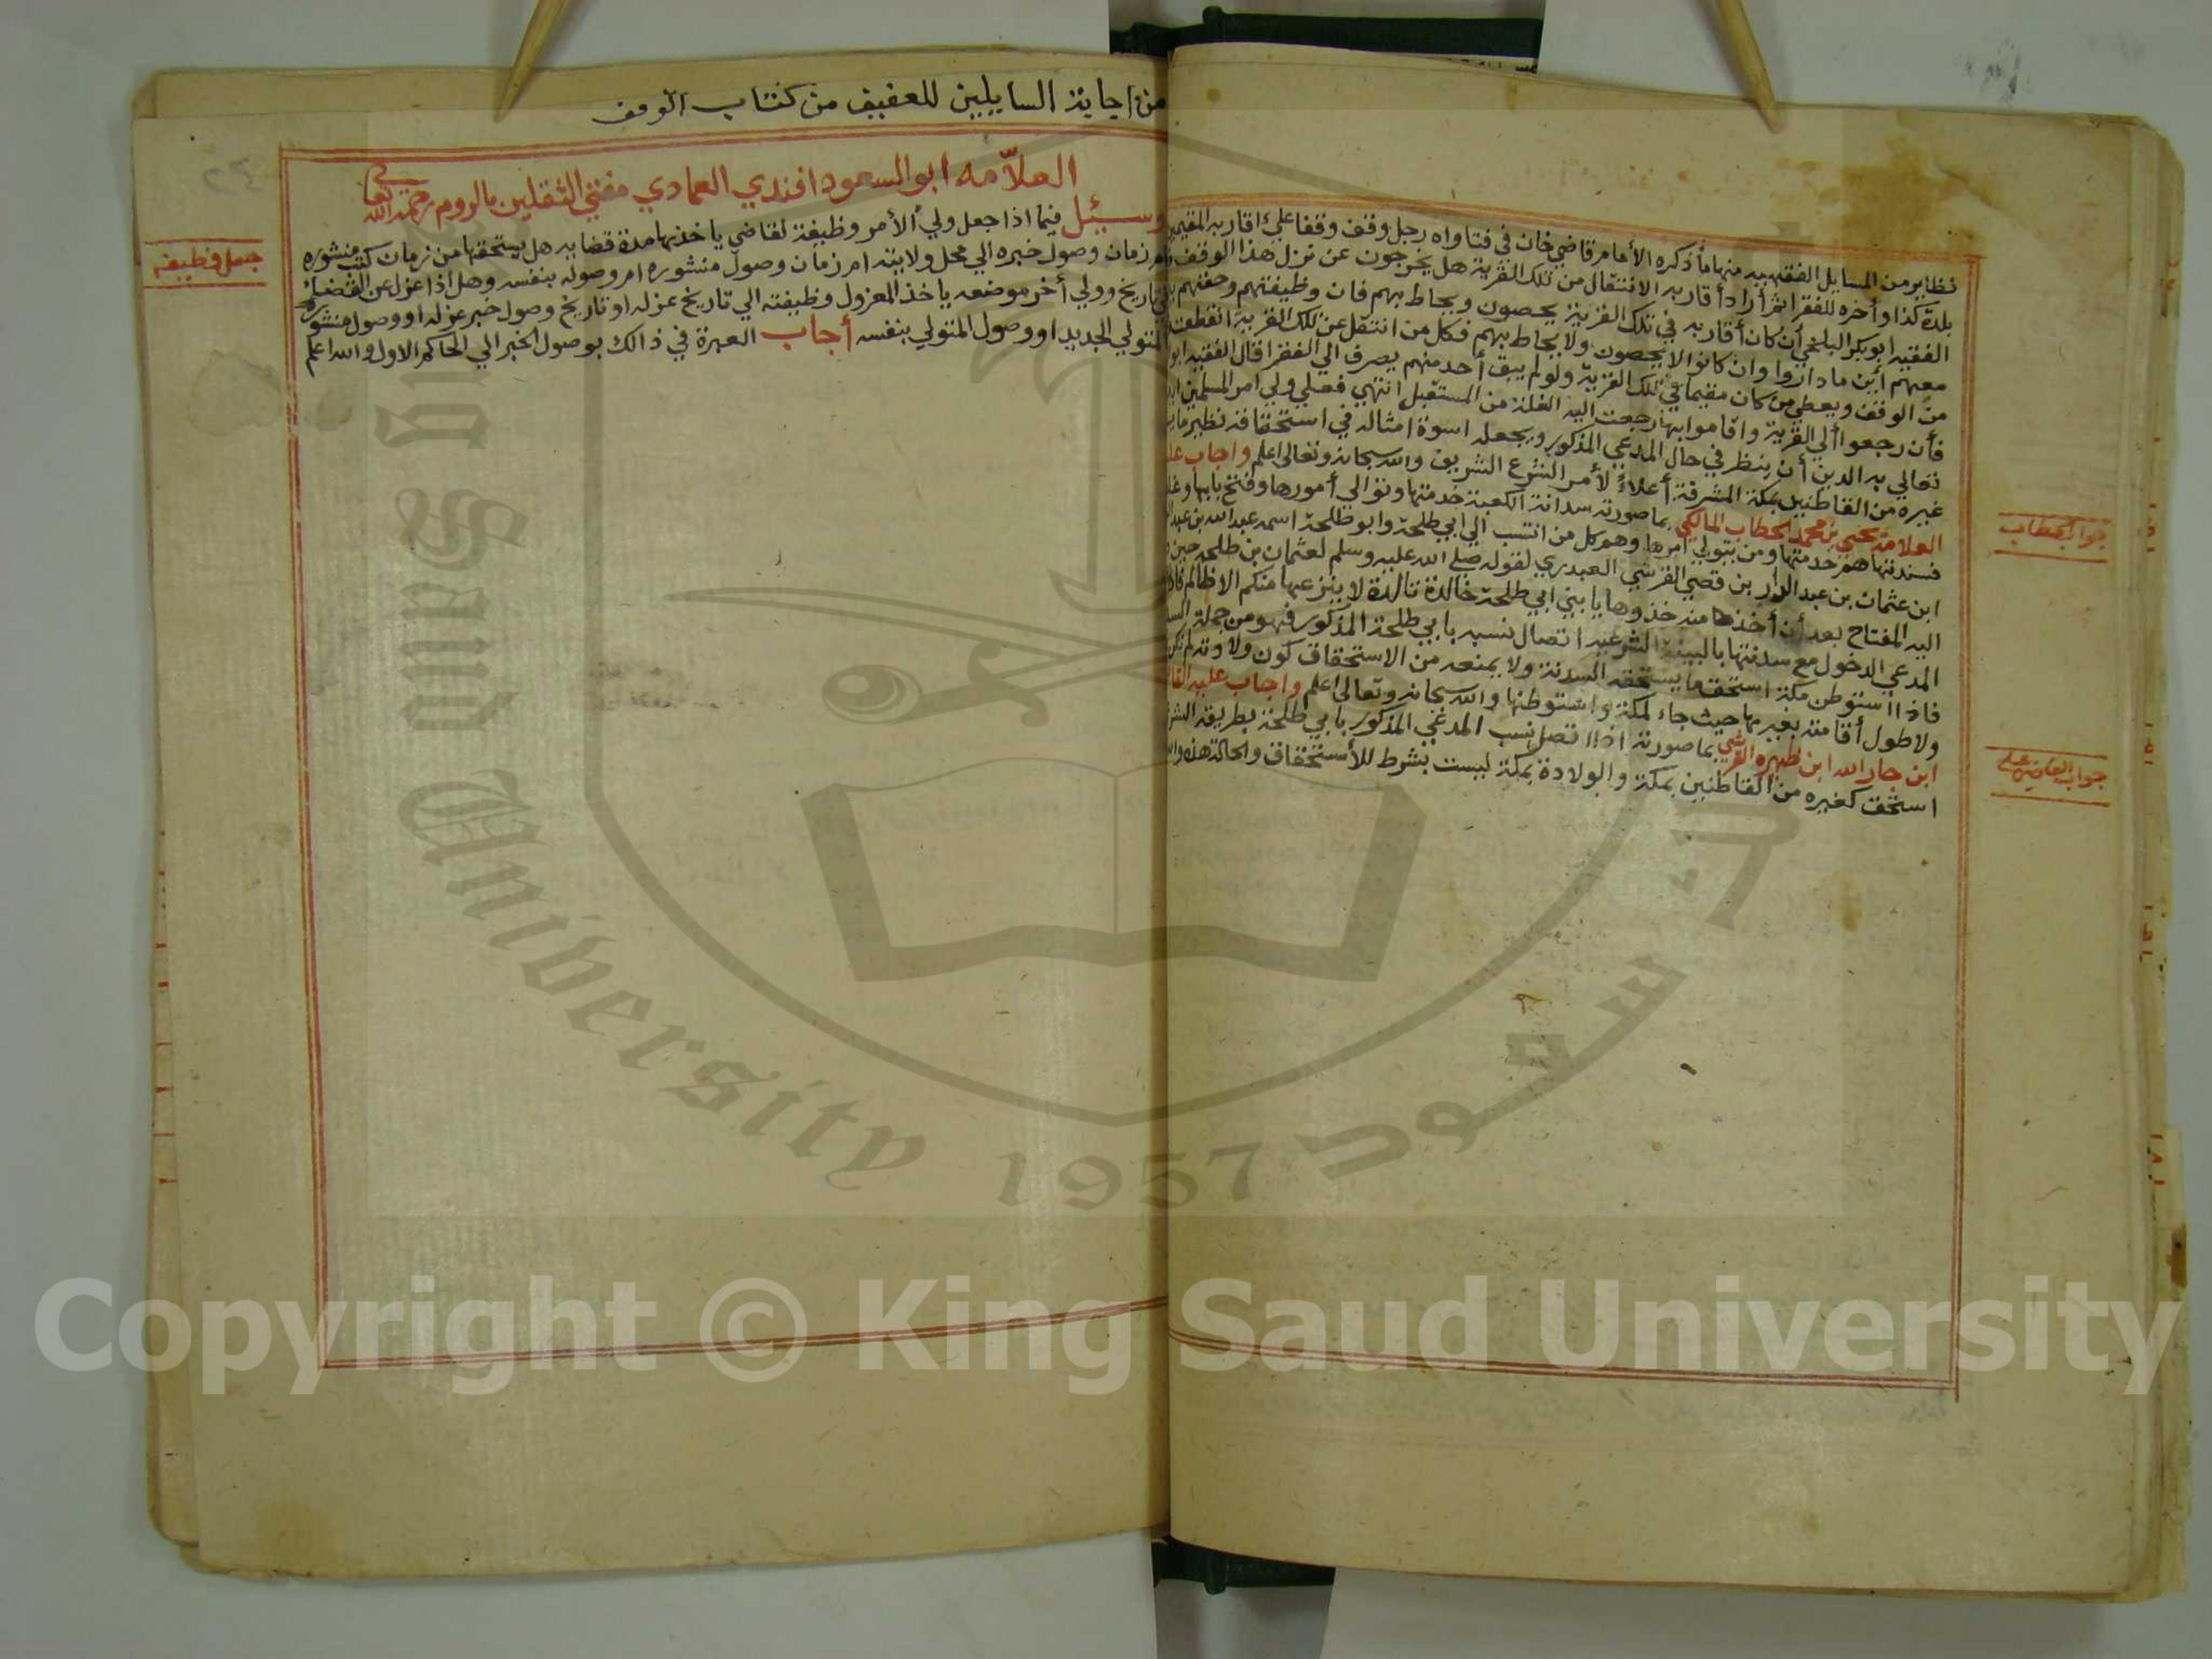 نظاير من المسايل الفقهيه منها ما ذكره الأمام قاضي خان في فتاواه رجل وقف وقفا علي اقاربه المقيمين
بلدة كذا وأخره للفقرا ثم أراد أقاربه الانتقال من تلك القرية هل يخرجون عن نزل هذا الوقف
الفقيه ابو بكر البلخي أن كان أقاربه في تلك القرية يحصون ويحاط بهم فان وظيفتهم وحقهم
معهم أين ما داروا وان كانوا لا يحصون ولا يحاط بهم فكل من انتقل عن تلك القرية انقطعت
من الوقف ويعطي من كان مقيما في تلك القرية ولو لم يبق أحد منهم يصرف الي الفقرا قال الفقيه ابو
فأن رجعوا ألي القرية واقاموا بها رجعت اليه الغلة من المستقبل انتهي فعلي ولي امر المسلمين
تعالي به الدين أن ينظر في حال المدعي المذكور ويجعله اسوة امثاله في استحقاقه نظير ما
غيره من القاطنين بمكة المشرفة أعلاءً لأمر الشرع الشريف والله سبحانه وتعالى اعلم واجاب
العلامة يحيي بن محمد الحطاب المالكي بما صورته سدانة الكعبة خدمتها وتوالي أمورها وفتح بابها
فسدنتها هم خدمتها ومن يتولي امرها وهم كل من انتسب الي ابي طلحة وابو طلحة اسمه عبد الله بن عبد
ابن عثمان بن عبد الدار بن قصي القرشي العبدري لقوله صلي الله عليه وسلم لعثمان بن طلحه حين
اليه المفتاح بعد أن أخذها منه خذوها يا بني ابي طلحة خالدة تالدة لا ينزعها منكم الا ظالم
المدعي الدخول مع سدنتها بالبينة الشرعيه اتصال نسبه بابي طلحة المذكور فهو من جملة
فاذا استوطن مكة استحق ما يستحقه السدنة ولا يمنعه من الاستحقاق كون ولادته لم تكن
ولا طول أقامته بغيرها حيث جاء لمكة واستوطنها والله سبحانه وتعالى اعلم واجاب عليه
ابن جار الله ابن ظهيره القرشي بما صورته اذا اتصل نسب المدعي المذكور بابي طلحة بطريقه
استحق كغيره من القاطنين بمكة والولادة بمكة ليست بشرط للأستحقاق والحالة هذه
جواب الحطاب
جواب القاضي علي
من اجابة السايلين للعفيف من كتاب الوقف
العلاّمه ابو السعود افندي العمادي مفتي الثقلين بالروم رحمه الله تعالى
وسئل فيما اذا جعل ولي الأمر وظيفة لقاضي ياخذها مدة قضايه هل يستحقها من زمان كتب منشوره
ام زمان وصول خبره الي محل ولايته ام زمان وصول منشوره ام وصوله بنفسه وهل اذا عزل عن القضاء
تاريخ وولي أخر موضعه ياخذ المعزول وظيفته الي تاريخ عزله او تاريخ وصول خبر عزله او وصول منشور
المتولي الجديد او وصول المتولي بنفسه أجاب العبرة في ذالك بوصول الخبر الي الحاكم الاول والله اعلم
جعل وظيفه
Copyright © King Saud University
University
1957
سعود